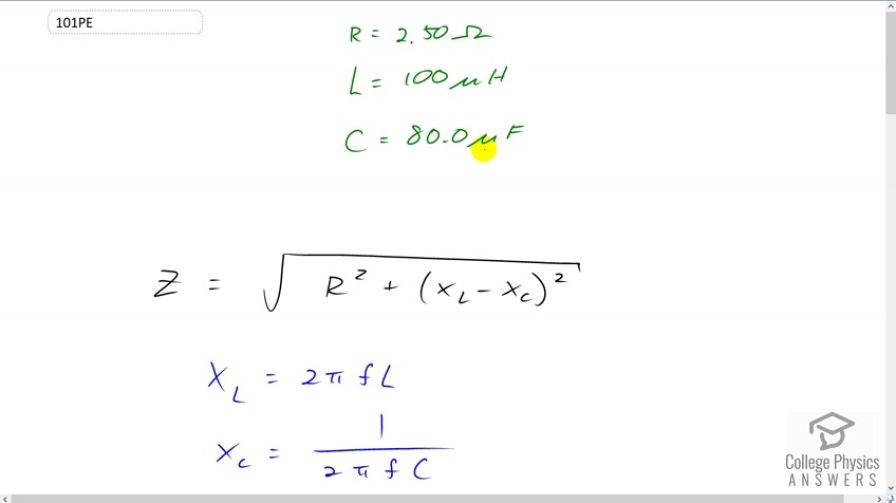 101PE
R = 2.50 Ω
L = 100 μH
C = 80.0 μF
Z = √(R² + (X_L - X_C)²)
X_L = 2πfL
X_C = 1 / (2πfC)
College Physics
ANSWERS